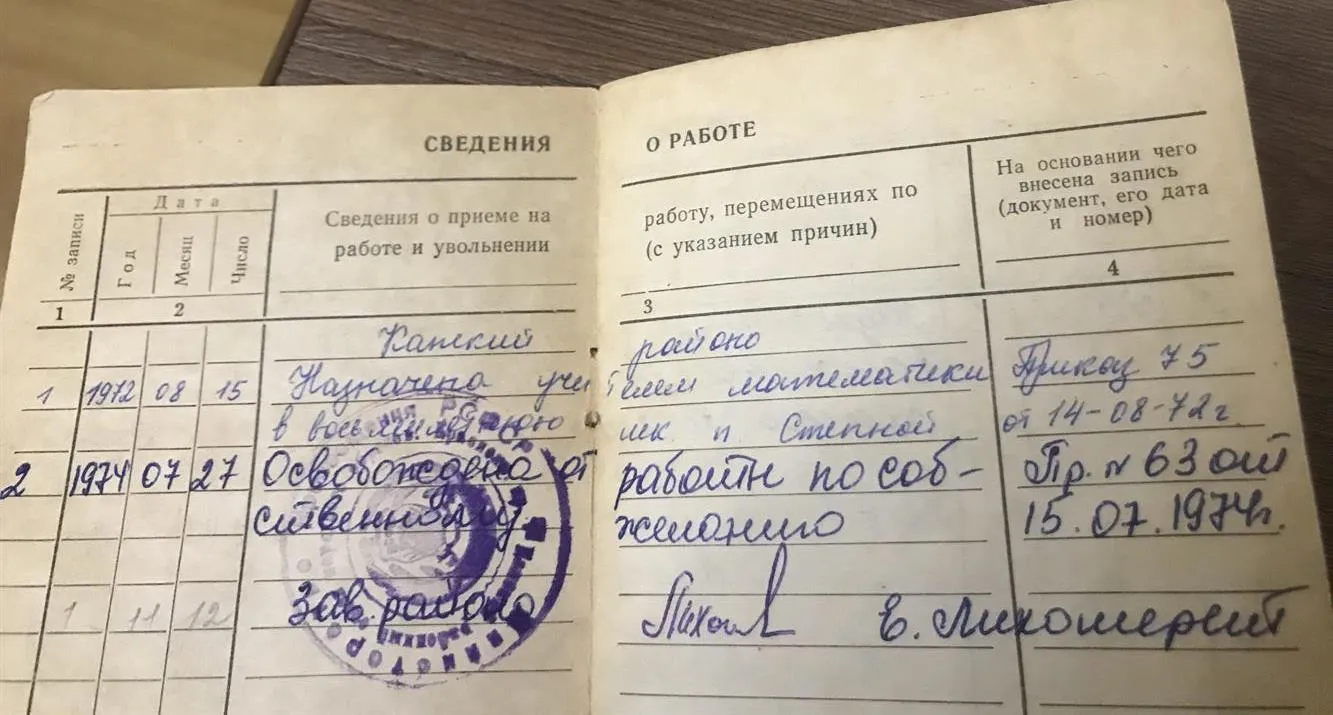 СВЕДЕНИЯ О РАБОТЕ
№ записи
Дата
Год
Месяц
Число
Сведения о приеме на работу, перемещениях по
работе и увольнении (с указанием причин)
На основании чего
внесена запись
(документ, его дата
и номер)
1 2 3 4
районо
1 1972 08 15 Назначена учителем математики Приказ 75
в восьмилетнюю шк п Степной от 14-08-72г.
2 1974 07 27 Освобождена от работы по соб- Пр. № 63 от
ственному желанию 15.07.1974г.
1 11 12 Зав. районо Е.